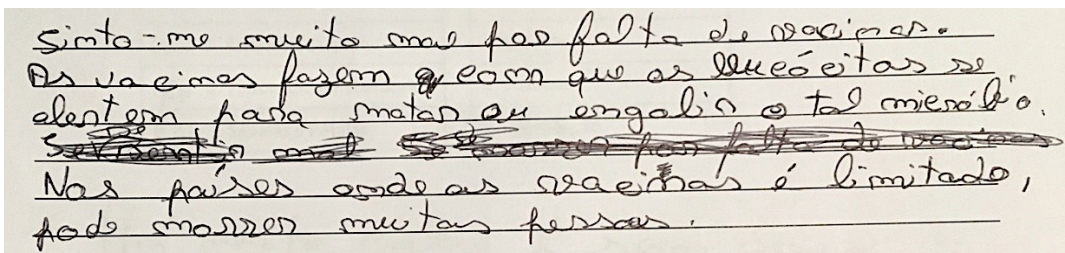 Sinto-me muito mal por falta de vacinas.
As vacinas fazem com que os leucócitos se
alertem para matar ou engolir o tal micróbio.
Nos países onde as vacinas é limitado,
pode morrer muitas pessoas.